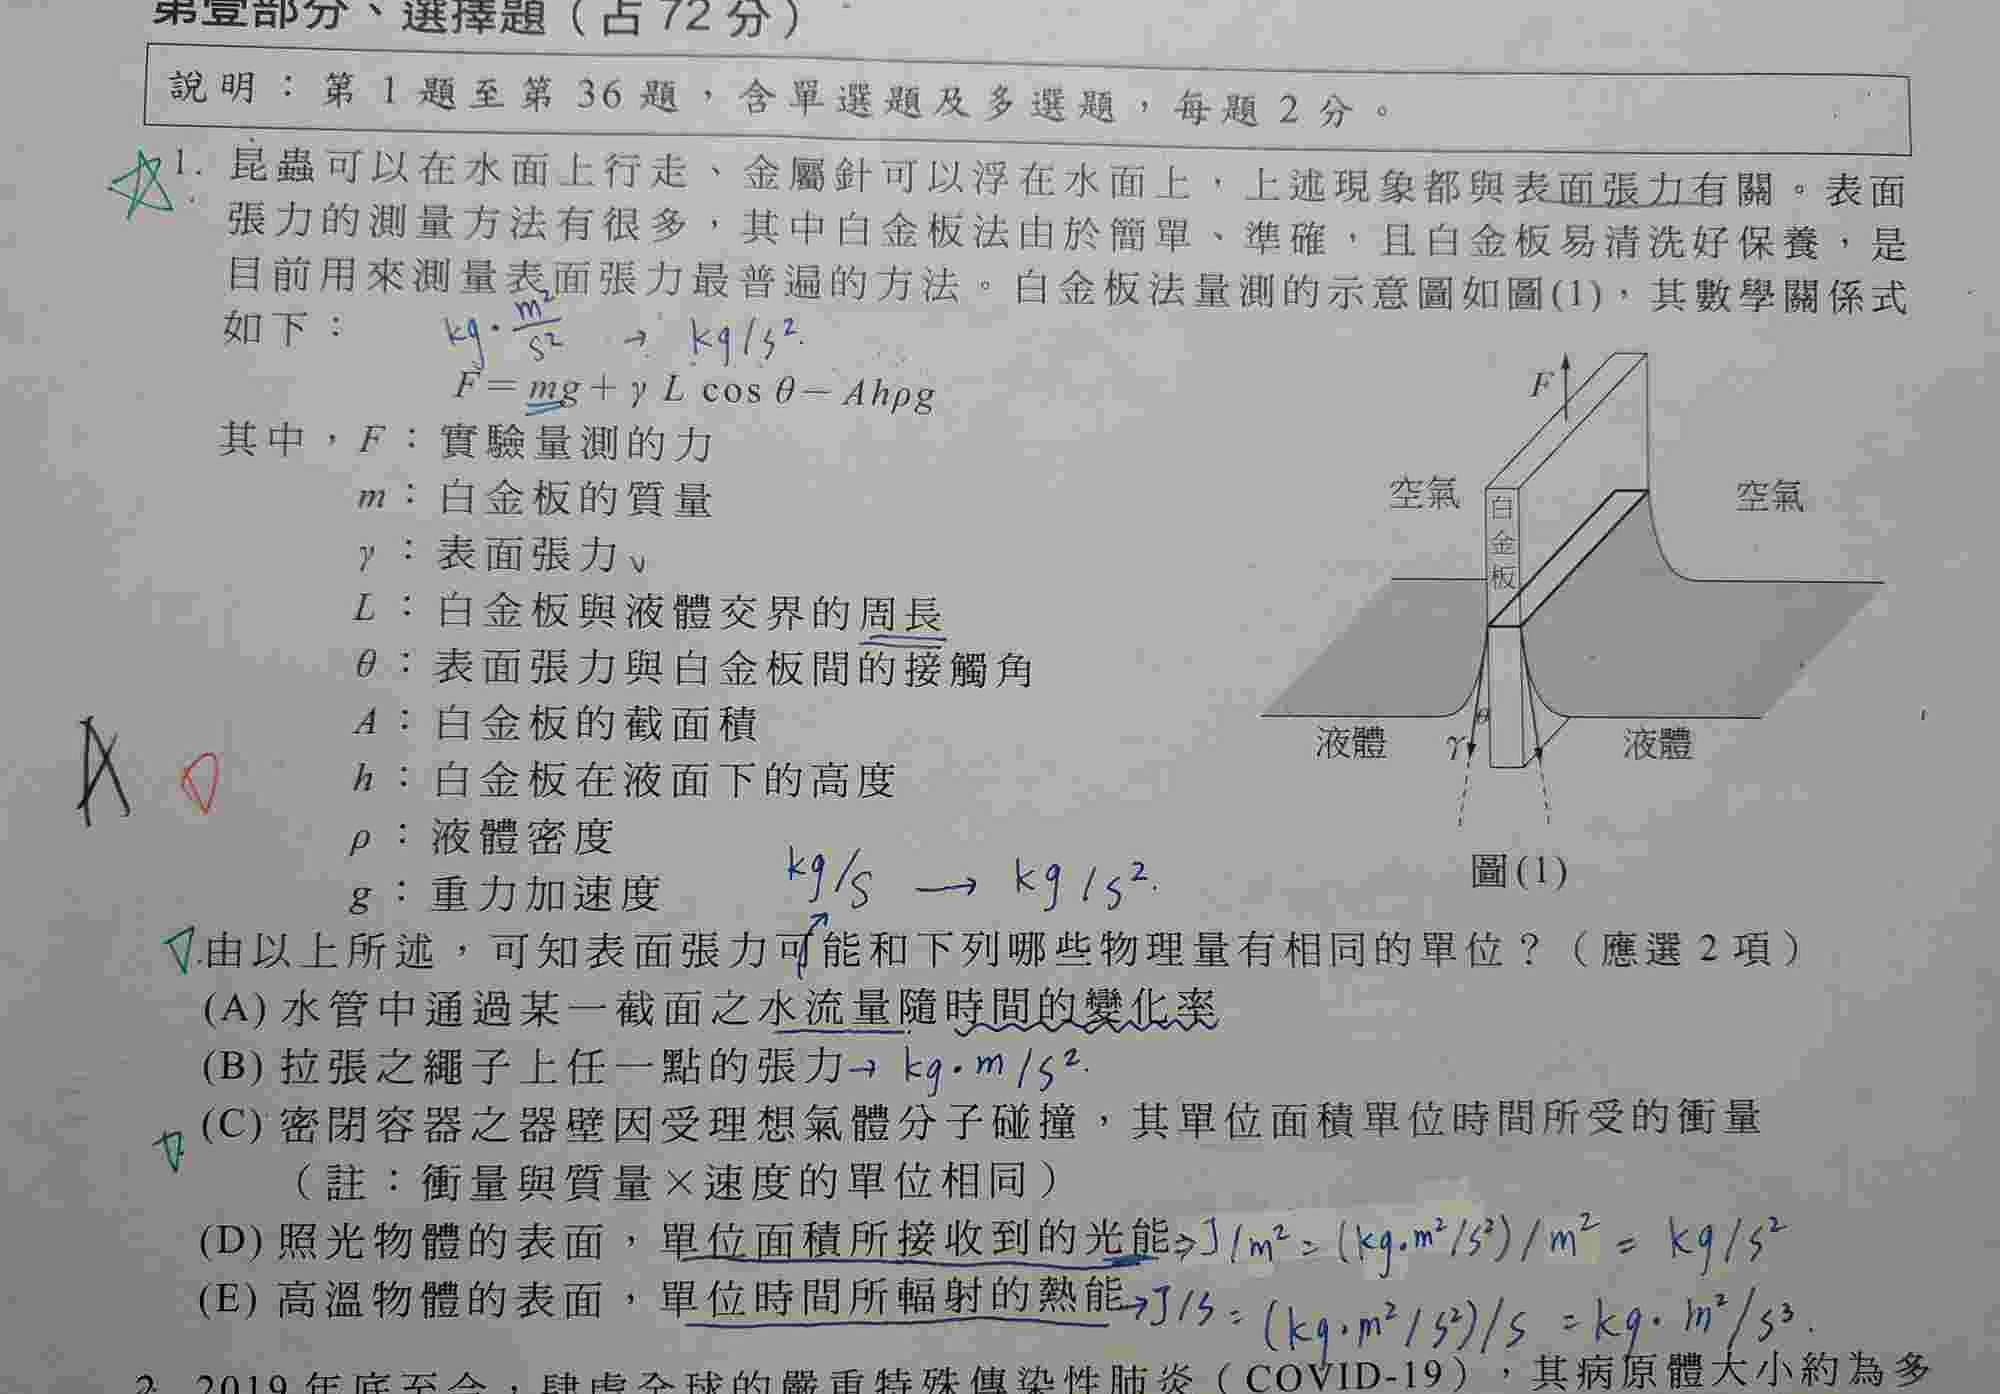 第壹部分、選擇題（占 72 分）
說明：第 1 題至第 36 題，含單選題及多選題，每題 2 分。
1. 昆蟲可以在水面上行走、金屬針可以浮在水面上，上述現象都與表面張力有關。表面
張力的測量方法有很多，其中白金板法由於簡單、準確，且白金板易清洗好保養，是
目前用來測量表面張力最普遍的方法。白金板法量測的示意圖如圖(1)，其數學關係式
如下：
kg·m²/s² → kg/s².
F=mg+γ L cos θ−Ahρg
其中，F：實驗量測的力
m：白金板的質量
γ：表面張力
L：白金板與液體交界的周長
θ：表面張力與白金板間的接觸角
A：白金板的截面積
h：白金板在液面下的高度
ρ：液體密度
g：重力加速度
F
空氣
白金板
空氣
θ
液體
γ
液體
圖(1)
A
kg/s → kg/s².
由以上所述，可知表面張力可能和下列哪些物理量有相同的單位？（應選 2 項）
(A) 水管中通過某一截面之水流量隨時間的變化率
(B) 拉張之繩子上任一點的張力→ kg·m/s².
(C) 密閉容器之器壁因受理想氣體分子碰撞，其單位面積單位時間所受的衝量
（註：衝量與質量×速度的單位相同）
(D) 照光物體的表面，單位面積所接收到的光能→J/m² = (kg·m²/s²)/m² = kg/s²
(E) 高溫物體的表面，單位時間所輻射的熱能→J/s = (kg·m²/s²)/s = kg·m²/s³.
2. 2019 年底至今，肆虐全球的嚴重特殊傳染性肺炎（COVID-19），其病原體大小約為多